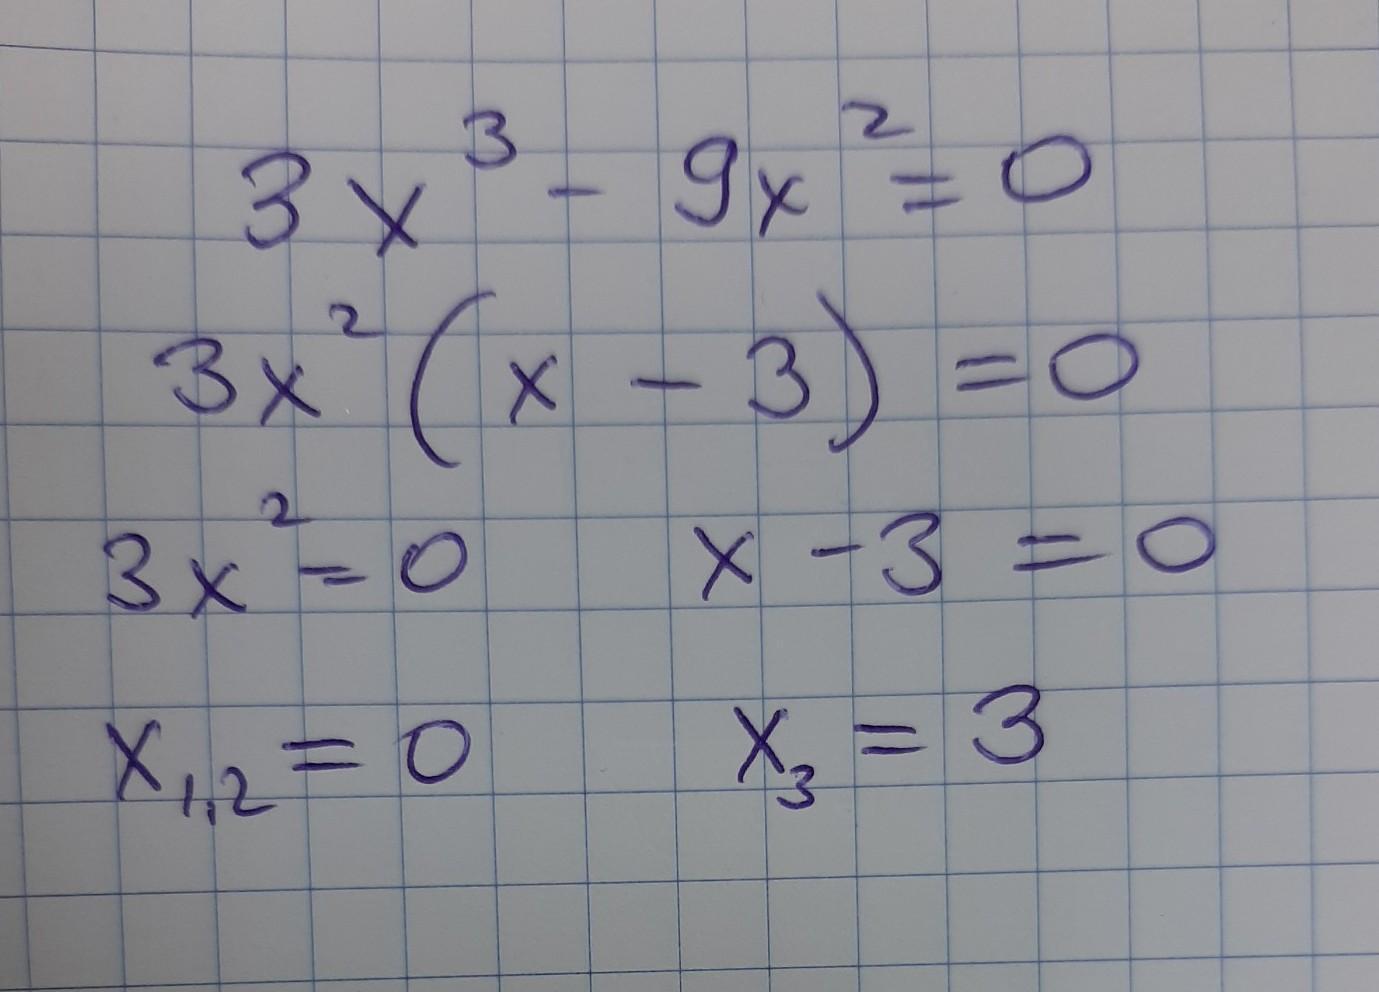 3x³ - 9x² = 0
3x² (x - 3) = 0
3x² = 0 x - 3 = 0
x₁,₂ = 0 x₃ = 3